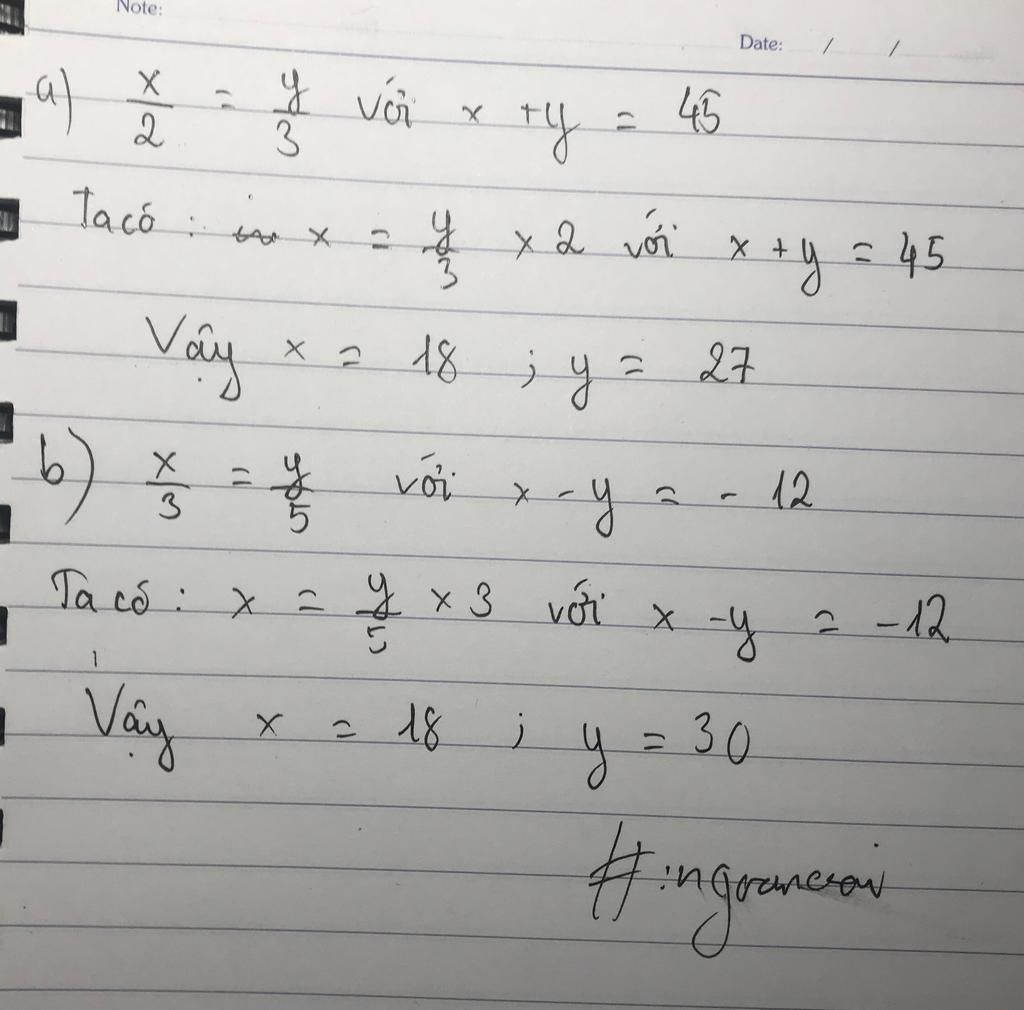 Note:
Date: / /
a) x/2 = y/3 với x + y = 45
Ta có : x = y/3 x 2 với x + y = 45
Vậy x = 18 ; y = 27
b) x/3 = y/5 với x - y = - 12
Ta có : x = y/5 x 3 với x - y = -12
Vậy x = 18 ; y = 30